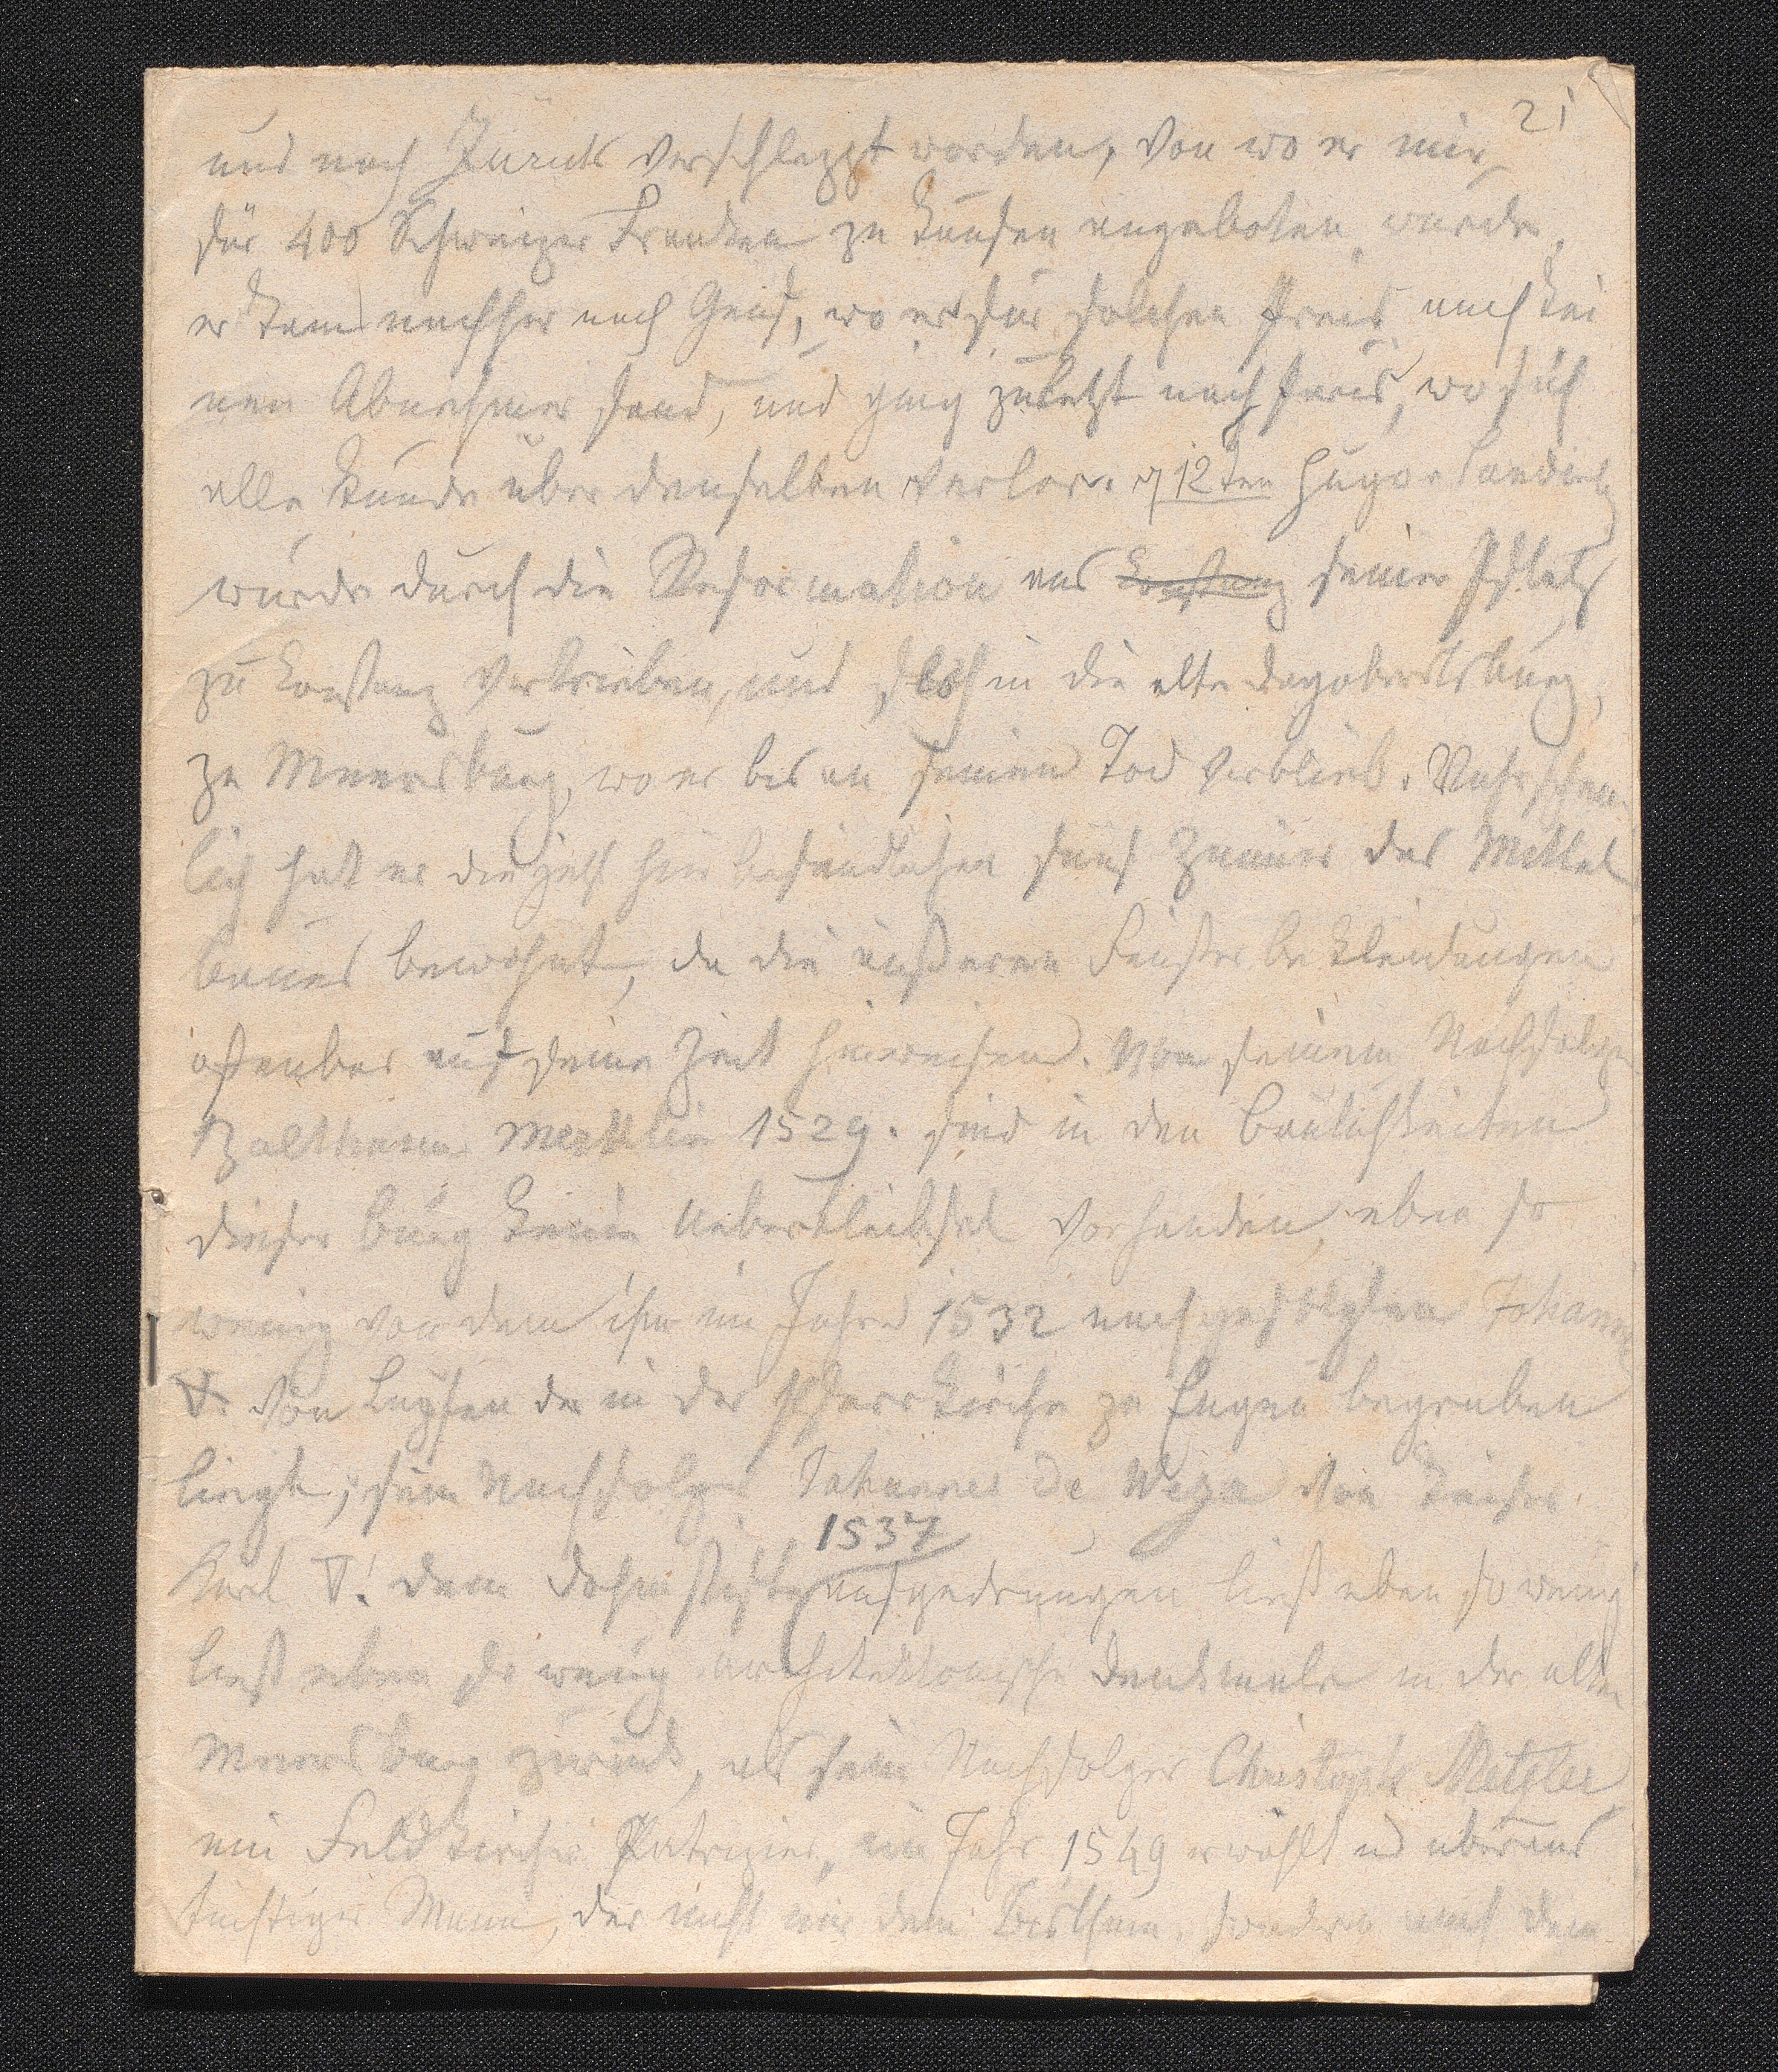 21
und nach Zürich verschleppt worden, von wo er mir
für 400 Schweizer Franken zu kaufen angeboten wurde,
er kam nachher nach Genf, wo er für solchen Preis auch kei
nen Abnehmer fand, und ging zuletzt nach Paris, wo ich
alle Kunde über denselben verlor. 12ten Hugo v Landenb
wurde durch die Reformation aus Konstanz seiner Pfalz
zu Konstanz vertrieben, und floh in die alte Dagobertsburg,
zu Meersburg, wo er bis an seinen Tod verblieb. Wahrschein
lich hat er die jetzt hier befindlichen fünf Zimmer des Mittel
baues bewohnt, da die äußeren Fensterbekleidungen
offenbar auf seine Zeit hinweisen. Von seinem Nachfolger
Balthasar Merklin 1529. sind in den Baulichkeiten
dieser Burg keine Ueberbleibsel vorhanden, eben so
wenig von dem ihm im Jahre 1532 nachgefolgten Johann
V. von Lupfen der in der Pfarrkirche zu Engen begraben
liegt; sein Nachfolger Johannes de Weza von Kaiser
1537
Karl V! dem Domstifte aufgedrungen ließ eben so wenig
ließ eben so wenig architektonische Denkmale in der alten
Meersburg zurück, als sein Nachfolger Christoph Metzler,
ein Feldkircher Patrizier, im Jahr 1549 erwählt u überaus
tüchtiger Mann, der nicht nur dem Bisthum, sondern auch dem